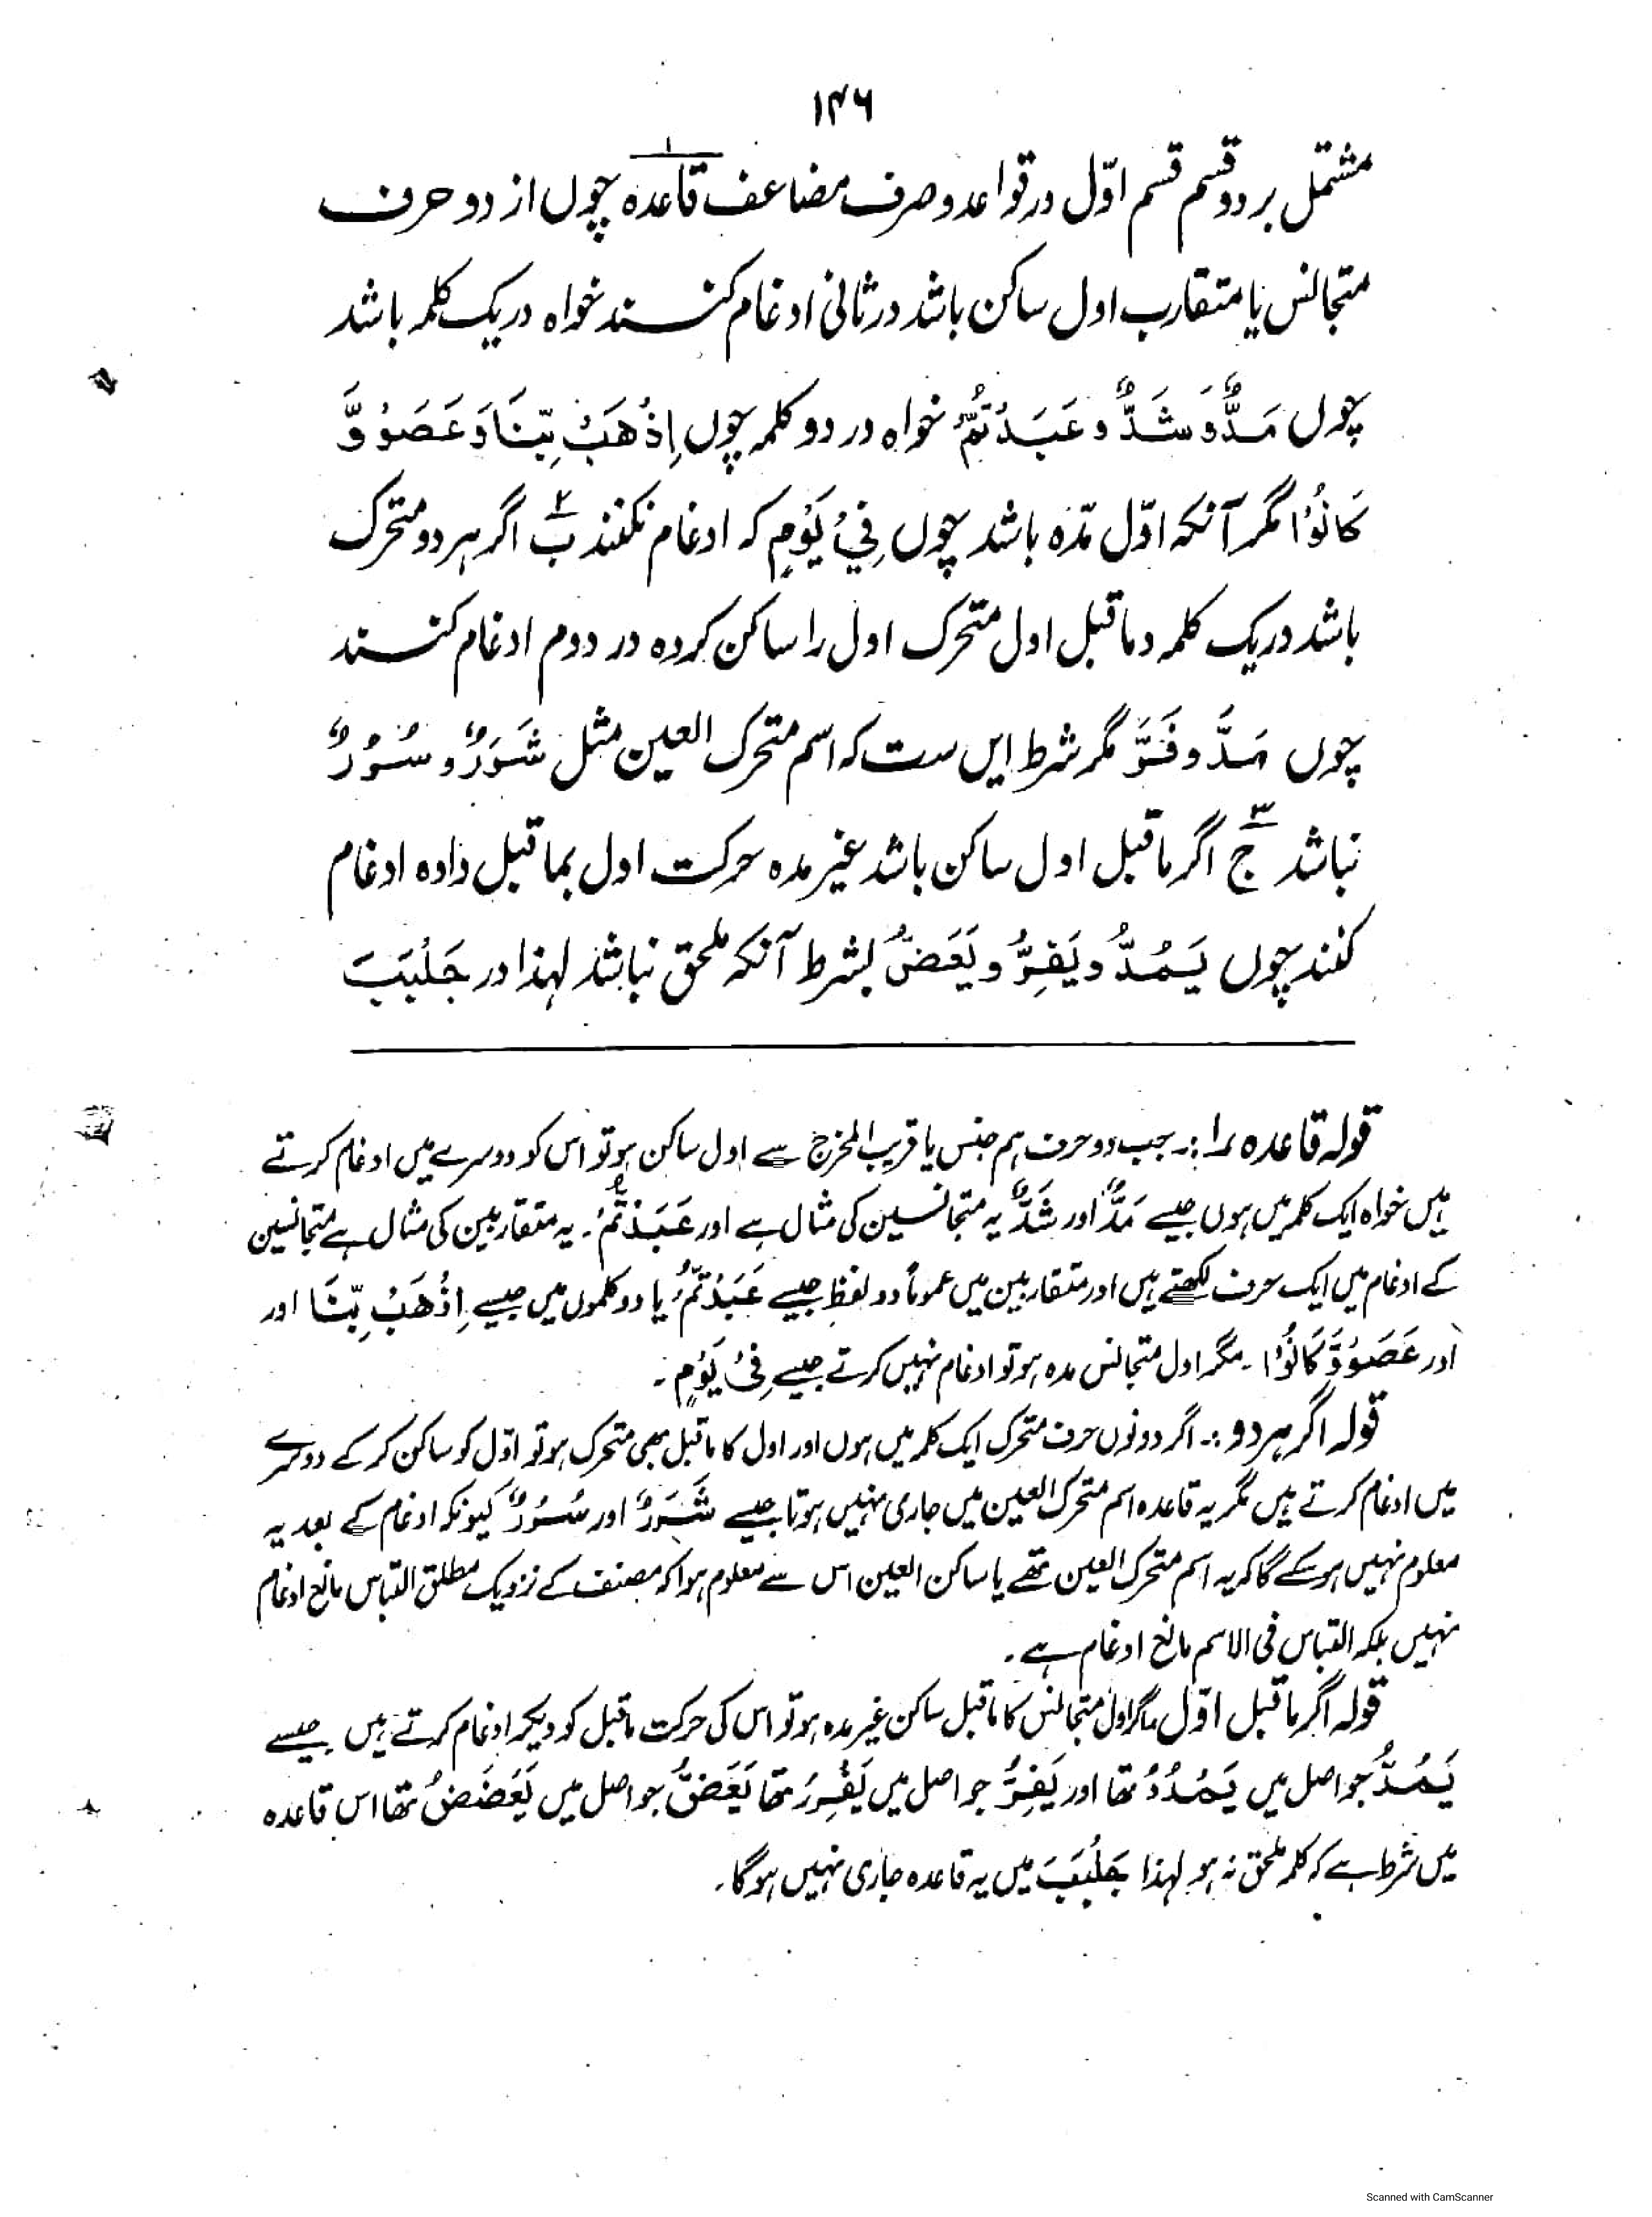 ۱۴۶
مشتمل بر دو قسم قسم اوّل در قواعد و صرف مضاعف قاعدہ ۱ چوں از دو حرف
متجانس یا متقارب اول ساکن باشد در ثانی ادغام کنند خواہ در یک کلمہ باشد
چوں مَدٌّ وَ شَدٌّ و عَبَدْتُّمْ خواہ در دو کلمہ چوں اِذْهَبْ بِّنَا وَ عَصَوْ وَّ
كَانُوْا مگر آنکہ اوّل مدّہ باشد چوں فِيْ يَوْمٍ کہ ادغام نکنند ب ۲ اگر ہر دو متحرک
باشد در یک کلمہ و ما قبل اول متحرک اول را ساکن کردہ در دوم ادغام کنند
چوں مَدَّ و فَرَّ مگر شرط ایں ست کہ اسم متحرک العین مثل شَرَرٌ و سُرُرٌ
نباشد ج ۳ اگر ما قبل اول ساکن باشد غیر مدہ حرکت اول بما قبل دادہ ادغام
کنند چوں يَمُدُّ و يَفِرُّ و يَعَضُّ بشرط آنکہ ملحق نباشد لہذا در جَلْبَبَ
قولہ قاعدہ ۱ :۔ جب دو حرف ہم جنس یا قریب المخرج سے اول ساکن ہو تو اس کو دوسرے میں ادغام کرتے
ہیں خواہ ایک کلمہ میں ہوں جیسے مَدٌّ اور شَدٌّ یہ متجانسین کی مثال ہے اور عَبَدْتُّمْ۔ یہ متقاربین کی مثال ہے متجانسین
کے ادغام میں ایک حرف لکھتے ہیں اور متقاربین میں عموماً دو لفظ جیسے عَبَدْتُّمْ یا دو کلموں میں جیسے اِذْهَبْ بِّنَا اور
اور عَصَوْ وَّ كَانُوْا۔ مگر اول متجانس مدہ ہو تو ادغام نہیں کرتے جیسے فِيْ يَوْمٍ۔
قولہ اگر ہر دو :۔ اگر دونوں حرف متحرک ایک کلمہ میں ہوں اور اول کا ما قبل بھی متحرک ہو تو اوّل کو ساکن کر کے دوسرے
میں ادغام کرتے ہیں مگر یہ قاعدہ اسم متحرک العین میں جاری نہیں ہوتا جیسے شَرَرٌ اور سُرُرٌ کیونکہ ادغام کے بعد یہ
معلوم نہیں ہو سکے گا کہ یہ اسم متحرک العین تھے یا ساکن العین اس سے معلوم ہوا کہ مصنف کے نزدیک مطلق التباس مانع ادغام
نہیں بلکہ التباس فی الاسم مانع ادغام ہے۔
قولہ اگر ما قبل اوّل اگر اول متجانس کا ما قبل ساکن غیر مدہ ہو تو اس کی حرکت ما قبل کو دیکر ادغام کرتے ہیں جیسے
يَمُدُّ جو اصل میں يَمْدُدُ تھا اور يَفِرُّ جو اصل میں يَفْرِرُ تھا يَعَضُّ جو اصل میں يَعْضَضُ تھا اس قاعدہ
میں شرط ہے کہ کلمہ ملحق نہ ہو لہذا جَلْبَبَ میں یہ قاعدہ جاری نہیں ہوگا۔
Scanned with CamScanner